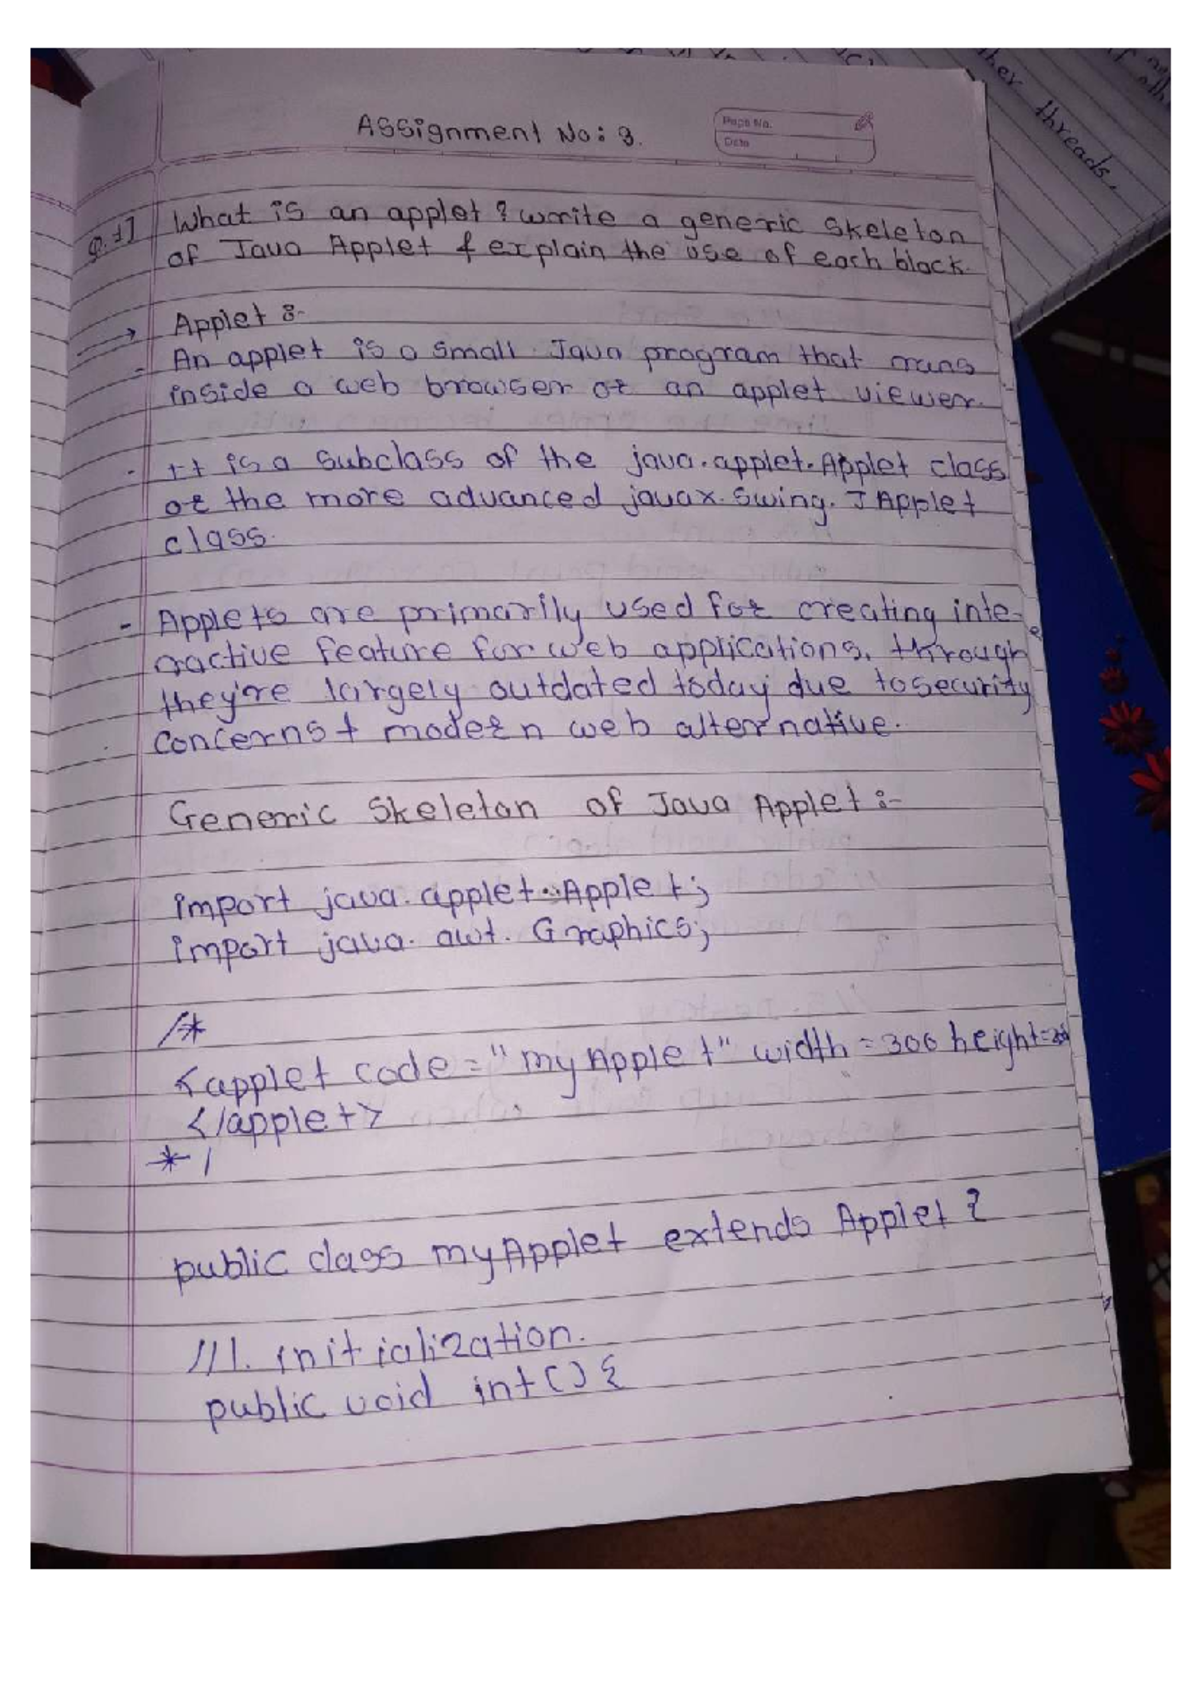 ther threads.
Assignment No: 3.
Page No.
Date
Q.1] What is an applet ? write a generic skeleton
of Java Applet & explain the use of each block.
→ Applet :-
- An applet is a small Java program that runs
inside a web browser or an applet viewer.
- It is a subclass of the java.applet.Applet class
or the more advanced javax.swing. JApplet
class.
- Applets are primarily used for creating inte-
ractive feature for web applications, through
they're largely outdated today due to security
concerns + modern web alternative.
Generic Skeleton of Java Applet :-
import java.applet.Applet;
import java.awt.Graphics;
/*
<applet code="myApplet" width=300 height=
</applet>
*/
public class myApplet extends Applet {
//1. initialization.
public void int() {